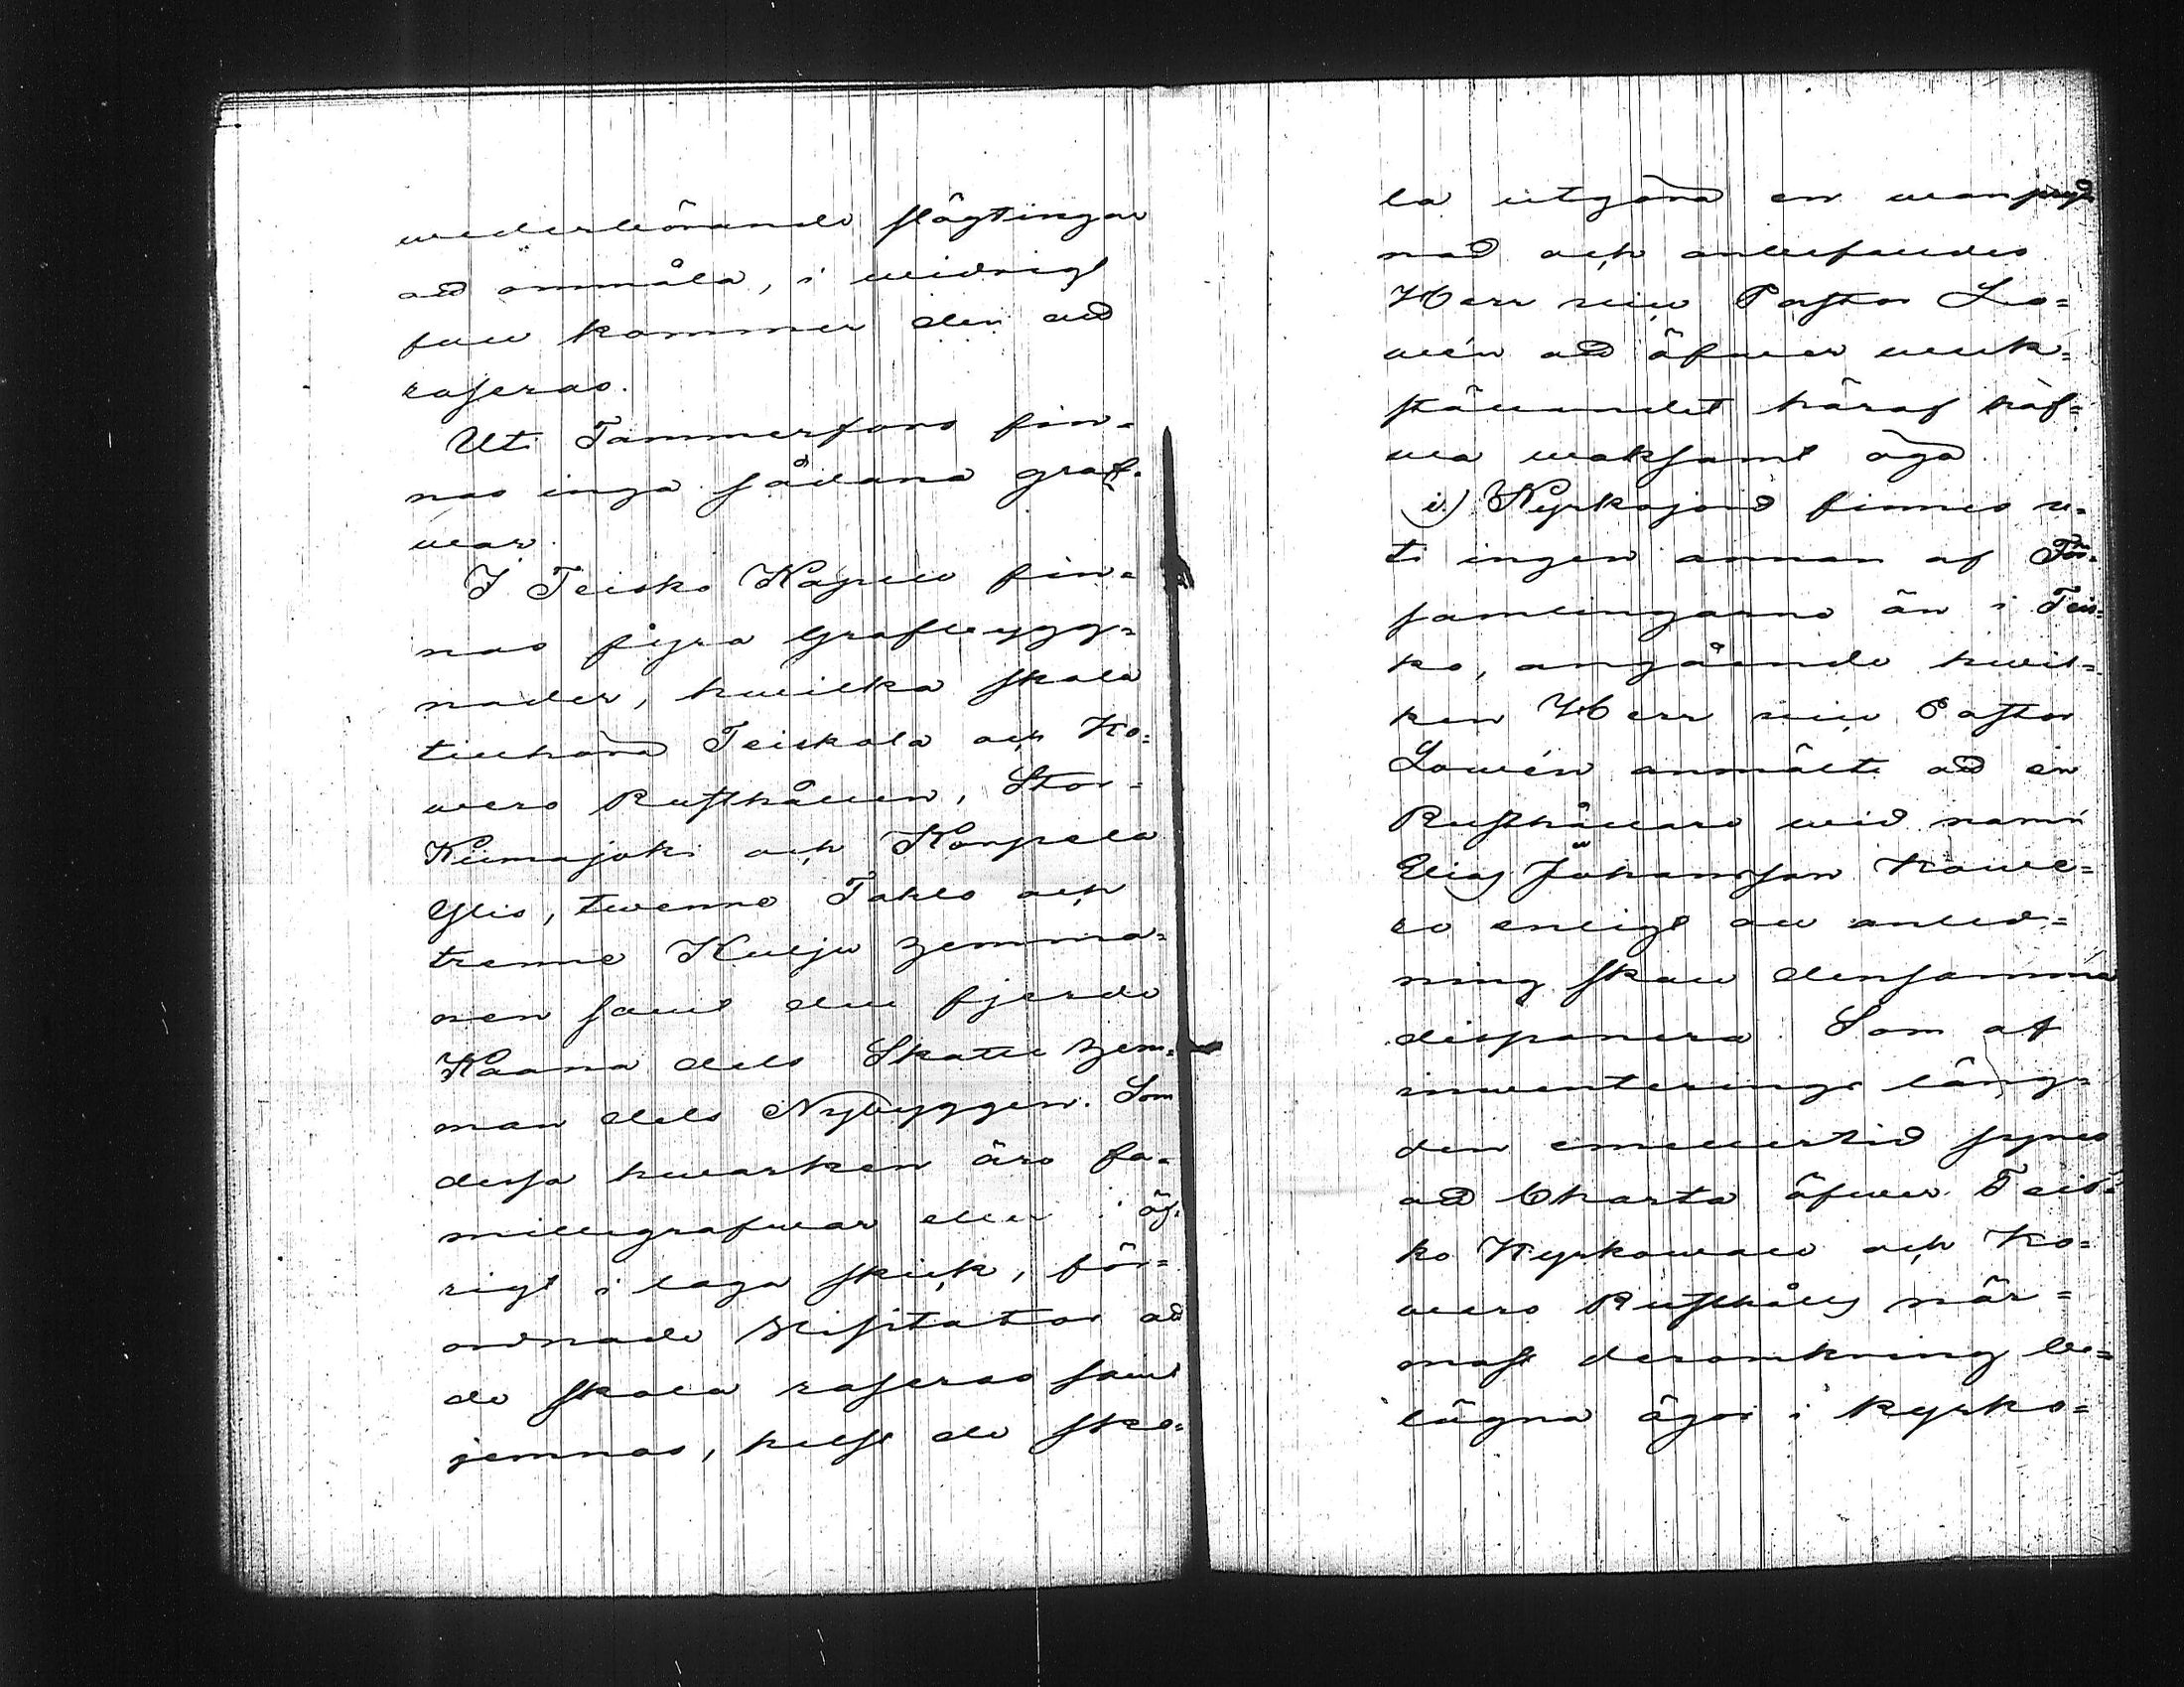 wederbörande slägtingar
ad ommåla, i widrigt
fall kommer den ad
raseras.
Uti Tammerfors fin-
nas inga sådana graf-
war.
I Teisko Kapell fin-
nas fyra Grafbygg-
nader, hwilka skola
tillhöra Teiskola och Ko-
wero Rusthållen, Stor-
Kiimajoki och Konpela
Ylis, twenne Taklo och
trenne Kulju Hemma-
nen samt den fjerde
Kaana dels Skatte Hem-
man dels Nybyggen. Som
dessa hwarken äro fa-
millegrafwar eller i öf-
rigt i laga skick, för-
ordnade Visitator ad
de skola raseras samt
jemnas, helst de sko-
la utgöra en wanpryd-
nad och anbefaldes
Herr vice Pastor Lo-
wén ad öfwer werk-
ställandet häraf haf-
wa waksamt öga.
i) Kyrkojord finnes u-
ti ingen annan af För-
samlingarne än i Teis-
ko, angående hwil-
ken Herr vice Pastor
Lowén anmälte ad en
Rusthållare wid namn
Elias Johansson Kowe-
ro enligt all anled-
ning skall densamma
disponera. Som af
inwenterings läng-
den emellertid synes
ad Charta öfwer Teis-
ko Kyrkowall och Ko-
wero Rusthålls när-
mast deromkring be-
lägna ägor i Kyrko-